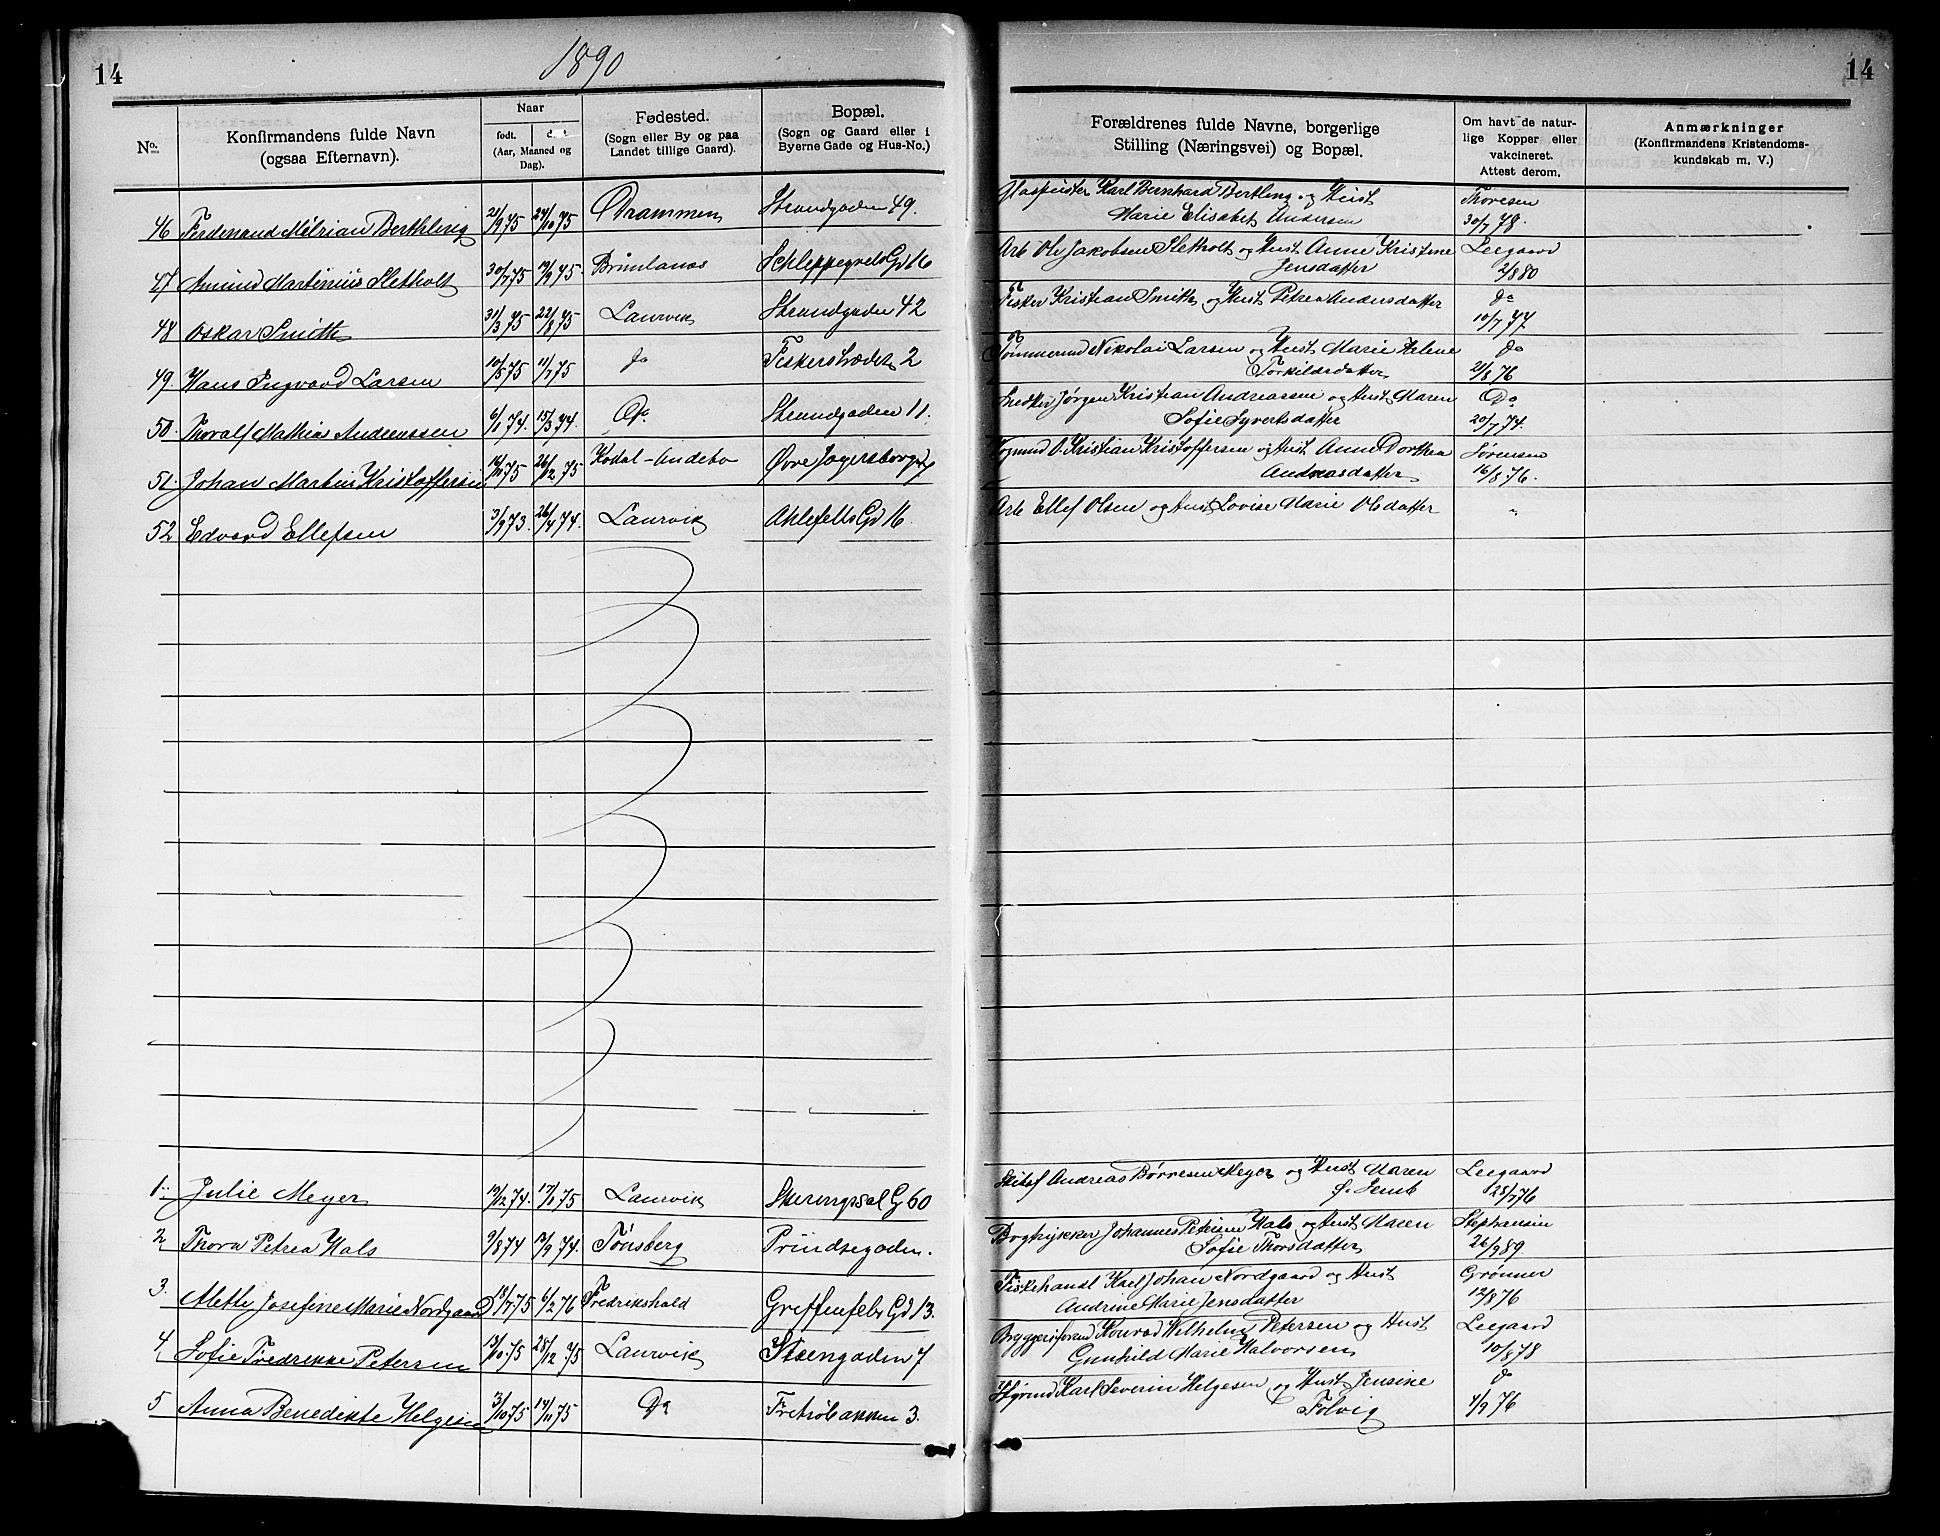 14
1890
14
No.
Konfirmandens fulde Navn
(ogsaa Efternavn).
Naar
født.
(Aar, Maaned og
Dag).
Fødested.
(Sogn eller By og paa
Landet tillige Gaard).
Bopæl.
(Sogn og Gaard eller i
Byerne Gade og Hus-No.)
Forældrenes fulde Navne, borgerlige
Stilling (Næringsvei) og Bopæl.
Om havt de natur-
lige Kopper eller
vakcineret.
Attest derom.
Anmærkninger
(Konfirmandens Kristendoms-
kundskab m. V.)
46 Ferdenand Berthling 21/9 75 24/10 75 Drammen Strandgaden 49. Karl Bernhard Bertling og Hust Thoresen
Marie Elisabet Andersen 30/7 78.
47 Amund Martinius Sletholt 30/7 75 12/9 75. Brunlanæs Schleppegrels Gd 16 Arb Ole Jakobsen Sletholt og Hust Anne Kristine Leegaard
Jensdatter 2/8 80
48 Oskar Smith 31/3 75 22/8 75 Laurvik Strandgaden 42 Fisker Kristian Smith og Hust Petrea Andersdatter do
10/7 77.
49. Hans Ingvard Larsen 10/5 75 11/7 75 do Fiskerstrædet 2 Tømmermd Nikolai Larsen og Hust Marie Helene do
Torkildsdatter 21/8 76
50. Thoralf Mathias Andreassen 6/1 74. 15/3 74. Do Strandgaden 11. Snedker Jørgen Kristian Andreassen og Hust Maren Do
Sofie Syvertsdatter 20/7 74.
51. Johan Martin Kristoffersen 26/12 75 Kodal-Andebo Øvre Jegersborgg Kristian Kristoffersen og Hust Anne Dorthea Sørensen
Andreasdatter 16/8 76.
52 Edvard Ellefsen 3/9 73. 26/4 74. Laurvik Ahlefelts Gd 16. Arb Ellef Olsen og Hust Lovise Marie Olsdatter "
1. Julie Meyer 19/12 74. 17/1 75 Laurvik Skiringssal G 60 Andreas Børresen Meyer og Hust Maren Leegaard
25/7 76
2 Thora Petrea Hals 9/8 74 Tønsberg Prindsegaden. Bogtrykker Johannes Petersen Hals og Hust Maren Stephansen
Sofie Thorsdatter 26/9 89
3. Alette Josefine Marie Nordgaard 13/7 75 6/2 76 Fredrikshald Greffenfels Gd 13. Fiskehandl Karl Johan Nordgaard og Hust Grønner
Andrine Marie Jensdatter 12/8 76
4 Sofie Fredrikke Petersen 13/10 75 28/12 75 Laurvik Steengaden 7 Konrad Wilhelm Petersen og Hust Leegaard
Gunhild Marie Halvorsen 10/8 78
5 Anna Benedikte Helgesen 3/10 75 14/11 75 Do Fretsøbakken 3. Karl Severin Helgesen og Hust Jensine do
Folvig 4/9 76